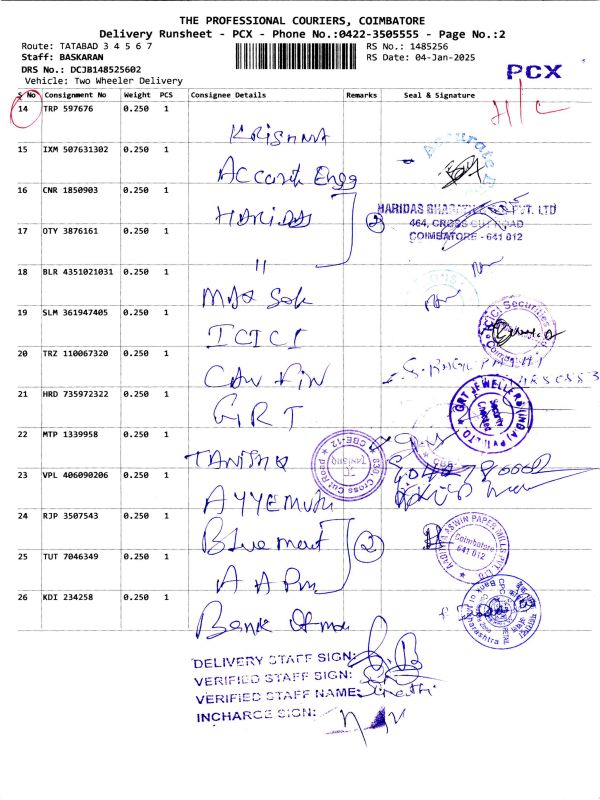 THE PROFESSIONAL COURIERS, COIMBATORE
Delivery Runsheet - PCX - Phone No.:0422-3505555 - Page No.:2
Route: TATABAD 3 4 5 6 7
RS No.: 1485256
Staff: BASKARAN
RS Date: 04-Jan-2025
DRS No.: DCJB148525602
Vehicle: Two Wheeler Delivery
PCX
H/C
S No Consignment No Weight PCS Consignee Details Remarks Seal & Signature
14 TRP 597676 0.250 1 KRISHNA
15 IXM 507631302 0.250 1 Accord Engg
Accurate
16 CNR 1850903 0.250 1 HARIDAS
2
HARIDAS PVT. LTD
464, CROSS CUT ROAD
COIMBATORE - 641 012
17 OTY 3876161 0.250 1 "
18 BLR 4351021031 0.250 1
19 SLM 361947405 0.250 1 ICICI
ICICI Securities
Coimbatore
20 TRZ 110067320 0.250 1 CAN FIN
21 HRD 735972322 0.250 1 GRT
GRT JEWELLERS (INDIA) PVT. LTD
Security
22 MTP 1339958 0.250 1 TANISHQ
TANISHQ
CBE-12
Cross Cut Road
23 VPL 406090206 0.250 1
24 RJP 3507543 0.250 1
2
ASWIN PAPER MILLS PVT. LTD
Coimbatore
641 012
25 TUT 7046349 0.250 1
26 KDI 234258 0.250 1 Bank of ma
Bank of Maharashtra
DELIVERY STAFF SIGN:
VERIFIED STAFF SIGN:
VERIFIED STAFF NAME:
INCHARGE SIGN: